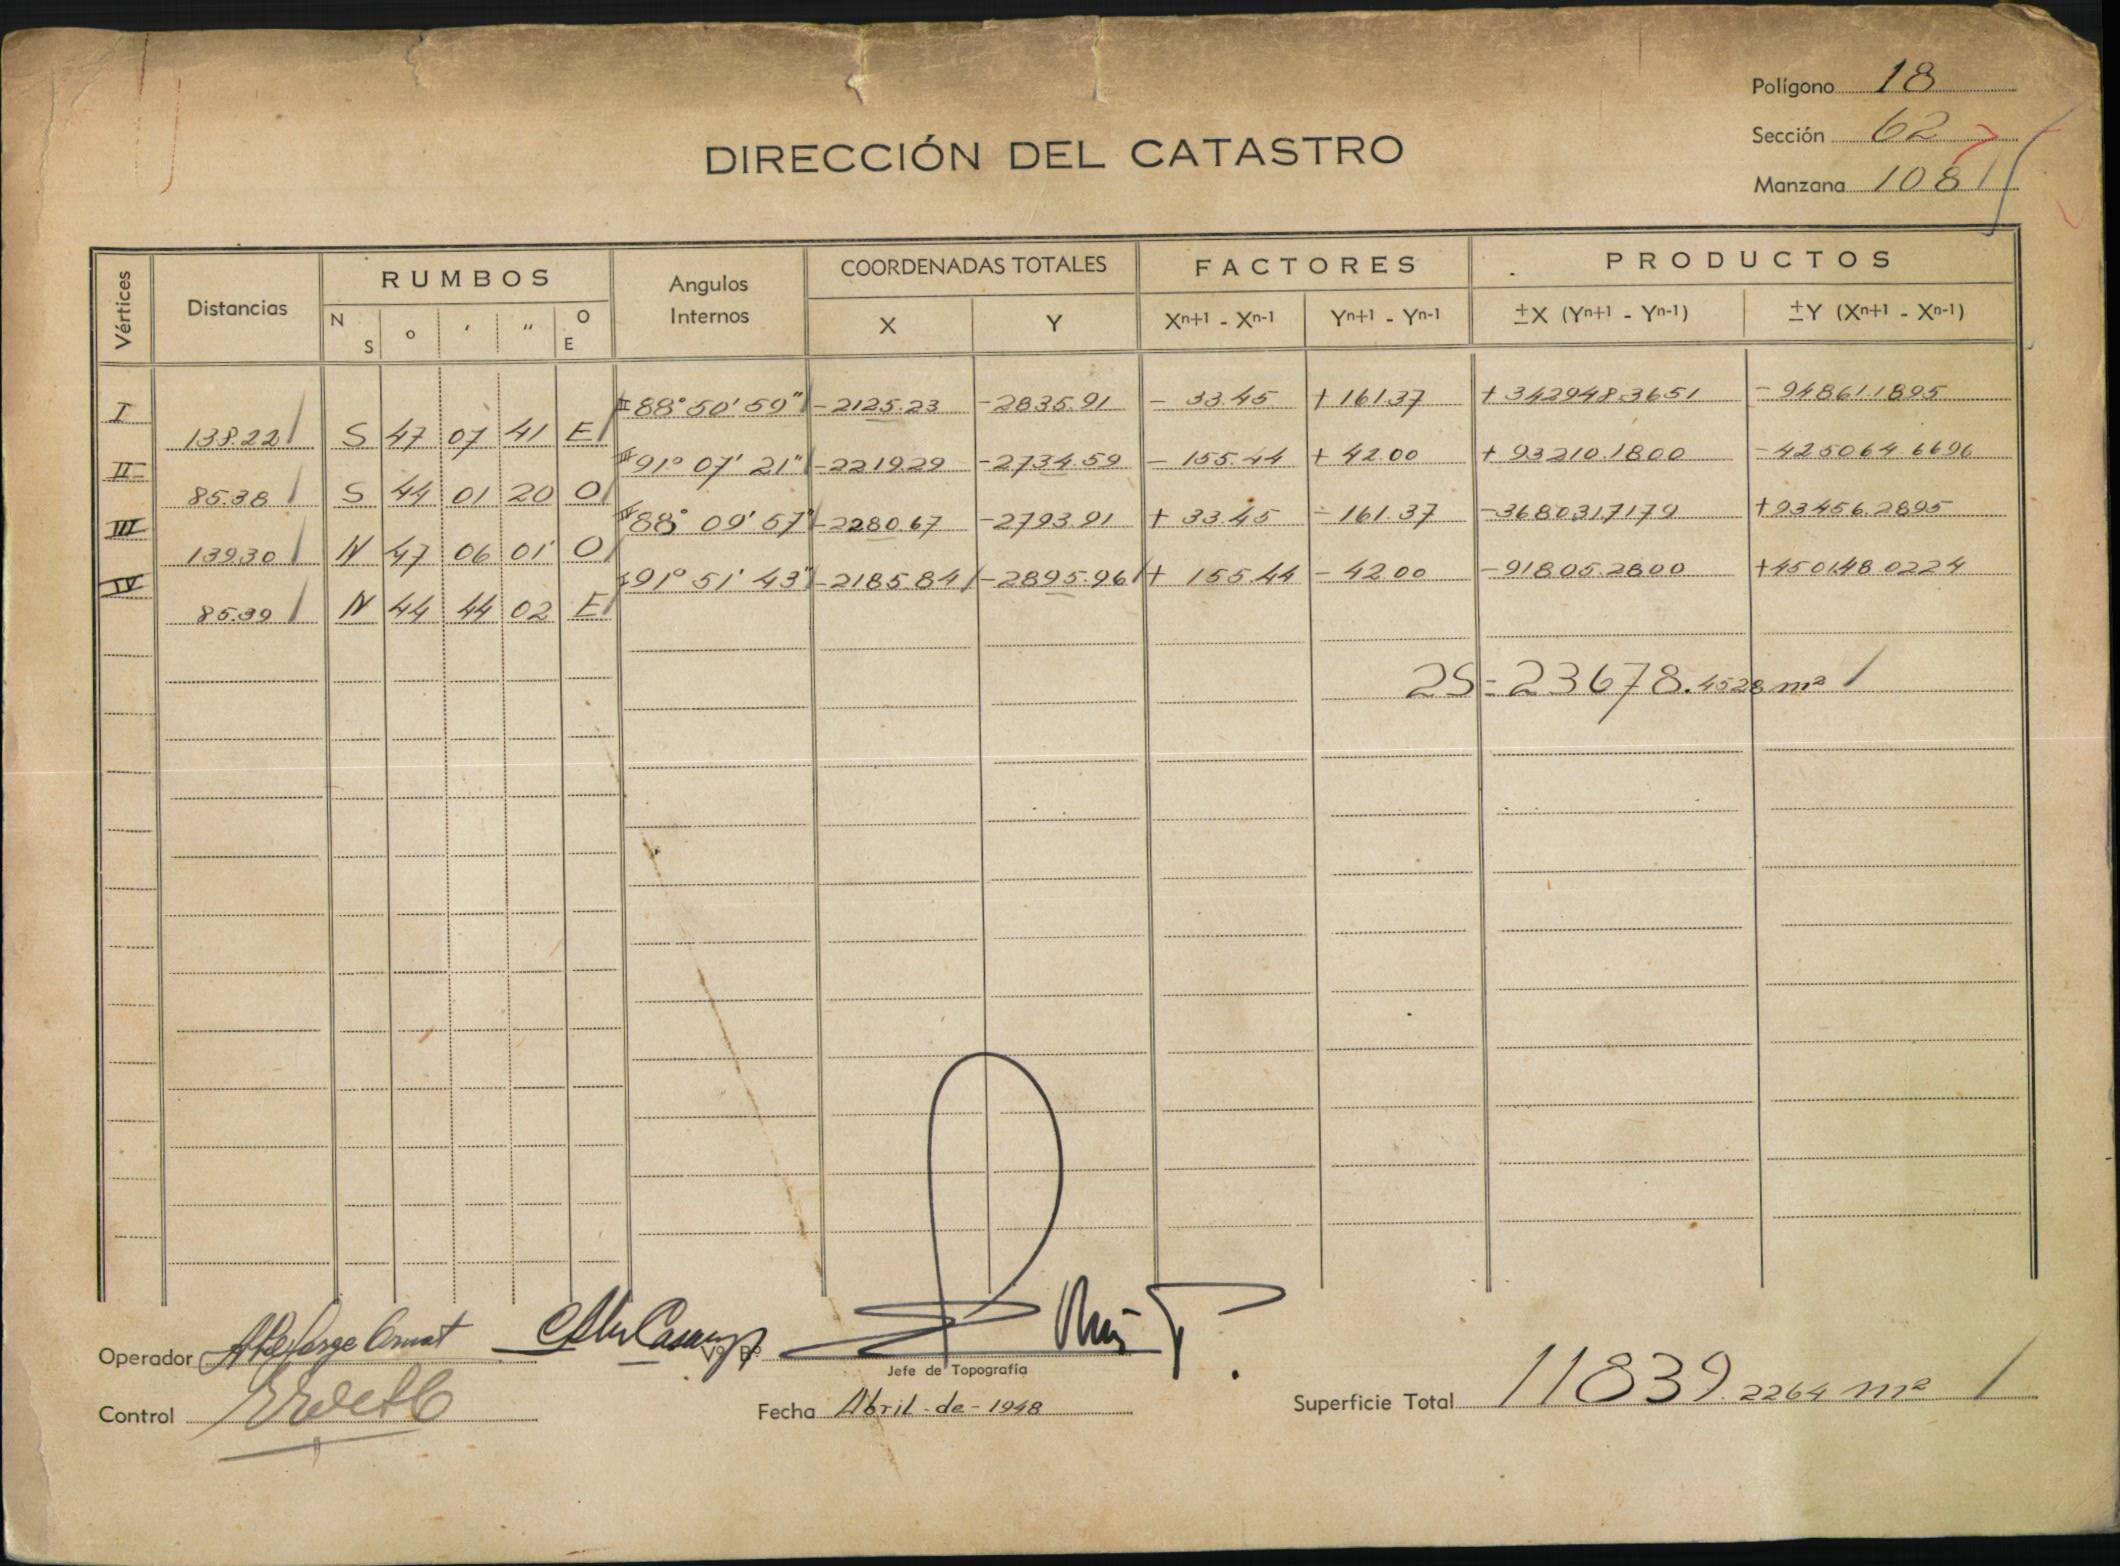 Polígono 18
Sección 62
Manzana 108
DIRECCIÓN DEL CATASTRO
Vértices Distancias RUMBOS Angulos Internos COORDENADAS TOTALES FACTORES PRODUCTOS
N S ° ′ ″ O E X Y Xn+1 - Xn-1 Yn+1 - Yn-1 ±X (Yn+1 - Yn-1) ±Y (Xn+1 - Xn-1)
I II 88° 50' 59" -2125.23 -2835.91 - 33.45 + 161.37 + 342948.3651 - 94861.1895
138.22 S 47 07 41 E
II III 91° 07' 21" -2219.29 -2734.59 - 155.44 + 42.00 + 93210.1800 - 425064.6696
85.38 S 44 01 20 O
III IV 88° 09' 57" -2280.67 -2793.91 + 33.45 - 161.37 -368031.7179 + 93456.2895
139.30 N 47 06 01 O
IV I 91° 51' 43" -2185.84 -2895.96 + 155.44 - 42.00 -91805.2800 +450148.0224
85.39 N 44 44 02 E
2S = 23678.4528 m²
Operador Vº Bº
Jefe de Topografía
Control Fecha Abril-de-1948 Superficie Total 11839.2264 m²